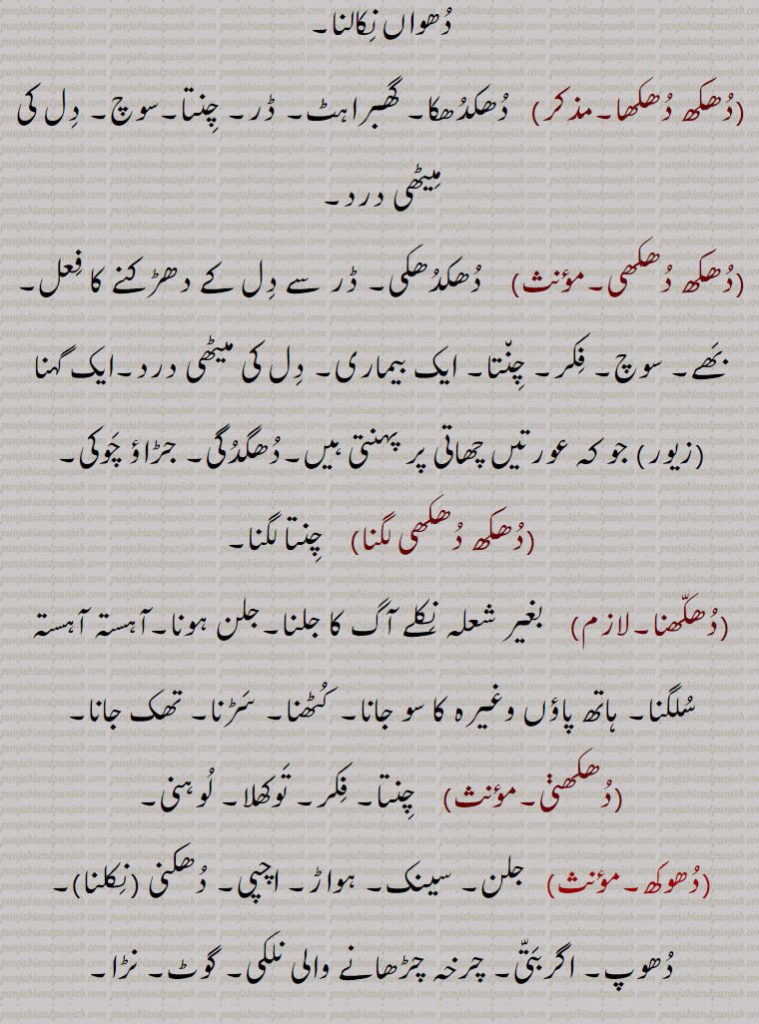 دُھواں نِکالنا۔
(دُھکھ دُھکھا۔مذکر) دُھکدُھکا۔ گھبراہٹ۔ ڈر۔ چِنتا۔سوچ۔ دِل کی
مِیٹھی درد۔
(دُھکھ دُھکھی۔مؤنث) دُھکدُھکی۔ ڈر سے دِل کے دھڑکنے کا فِعل۔
بَھے۔ سوچ۔ فِکر۔ چِنّتا۔ ایک بیماری۔ دِل کی میٹھی درد۔ایک گہنا
(زیور) جو کہ عورتیں چھاتی پر پہنتی ہیں۔دُھگدُگی۔ جڑاؤ چَوکی۔
(دُھکھ دُھکھی لگنا) چِنتا لگنا۔
(دُھکّھنا۔لازم) بغیر شعلہ نِکلے آگ کا جلنا۔جلن ہونا۔آہستہ آہستہ
سُلگنا۔ ہاتھ پاؤں وغیرہ کا سو جانا۔ کُٹھنا۔ سَڑنا۔ تھک جانا۔
(دُھکھنی۔مؤنث) چِنتا۔ فِکر۔ تَوکھلا۔ لُوہنی۔
(دُھوکھ۔مؤنث) جلن۔ سینک۔ ہواڑ۔ اچپی۔ دُھکنی (نِکلنا)۔
دُھوپ۔ اگربَتّی۔ چرخہ چڑھانے والی نلکی۔ گوٹ۔ نڑا۔